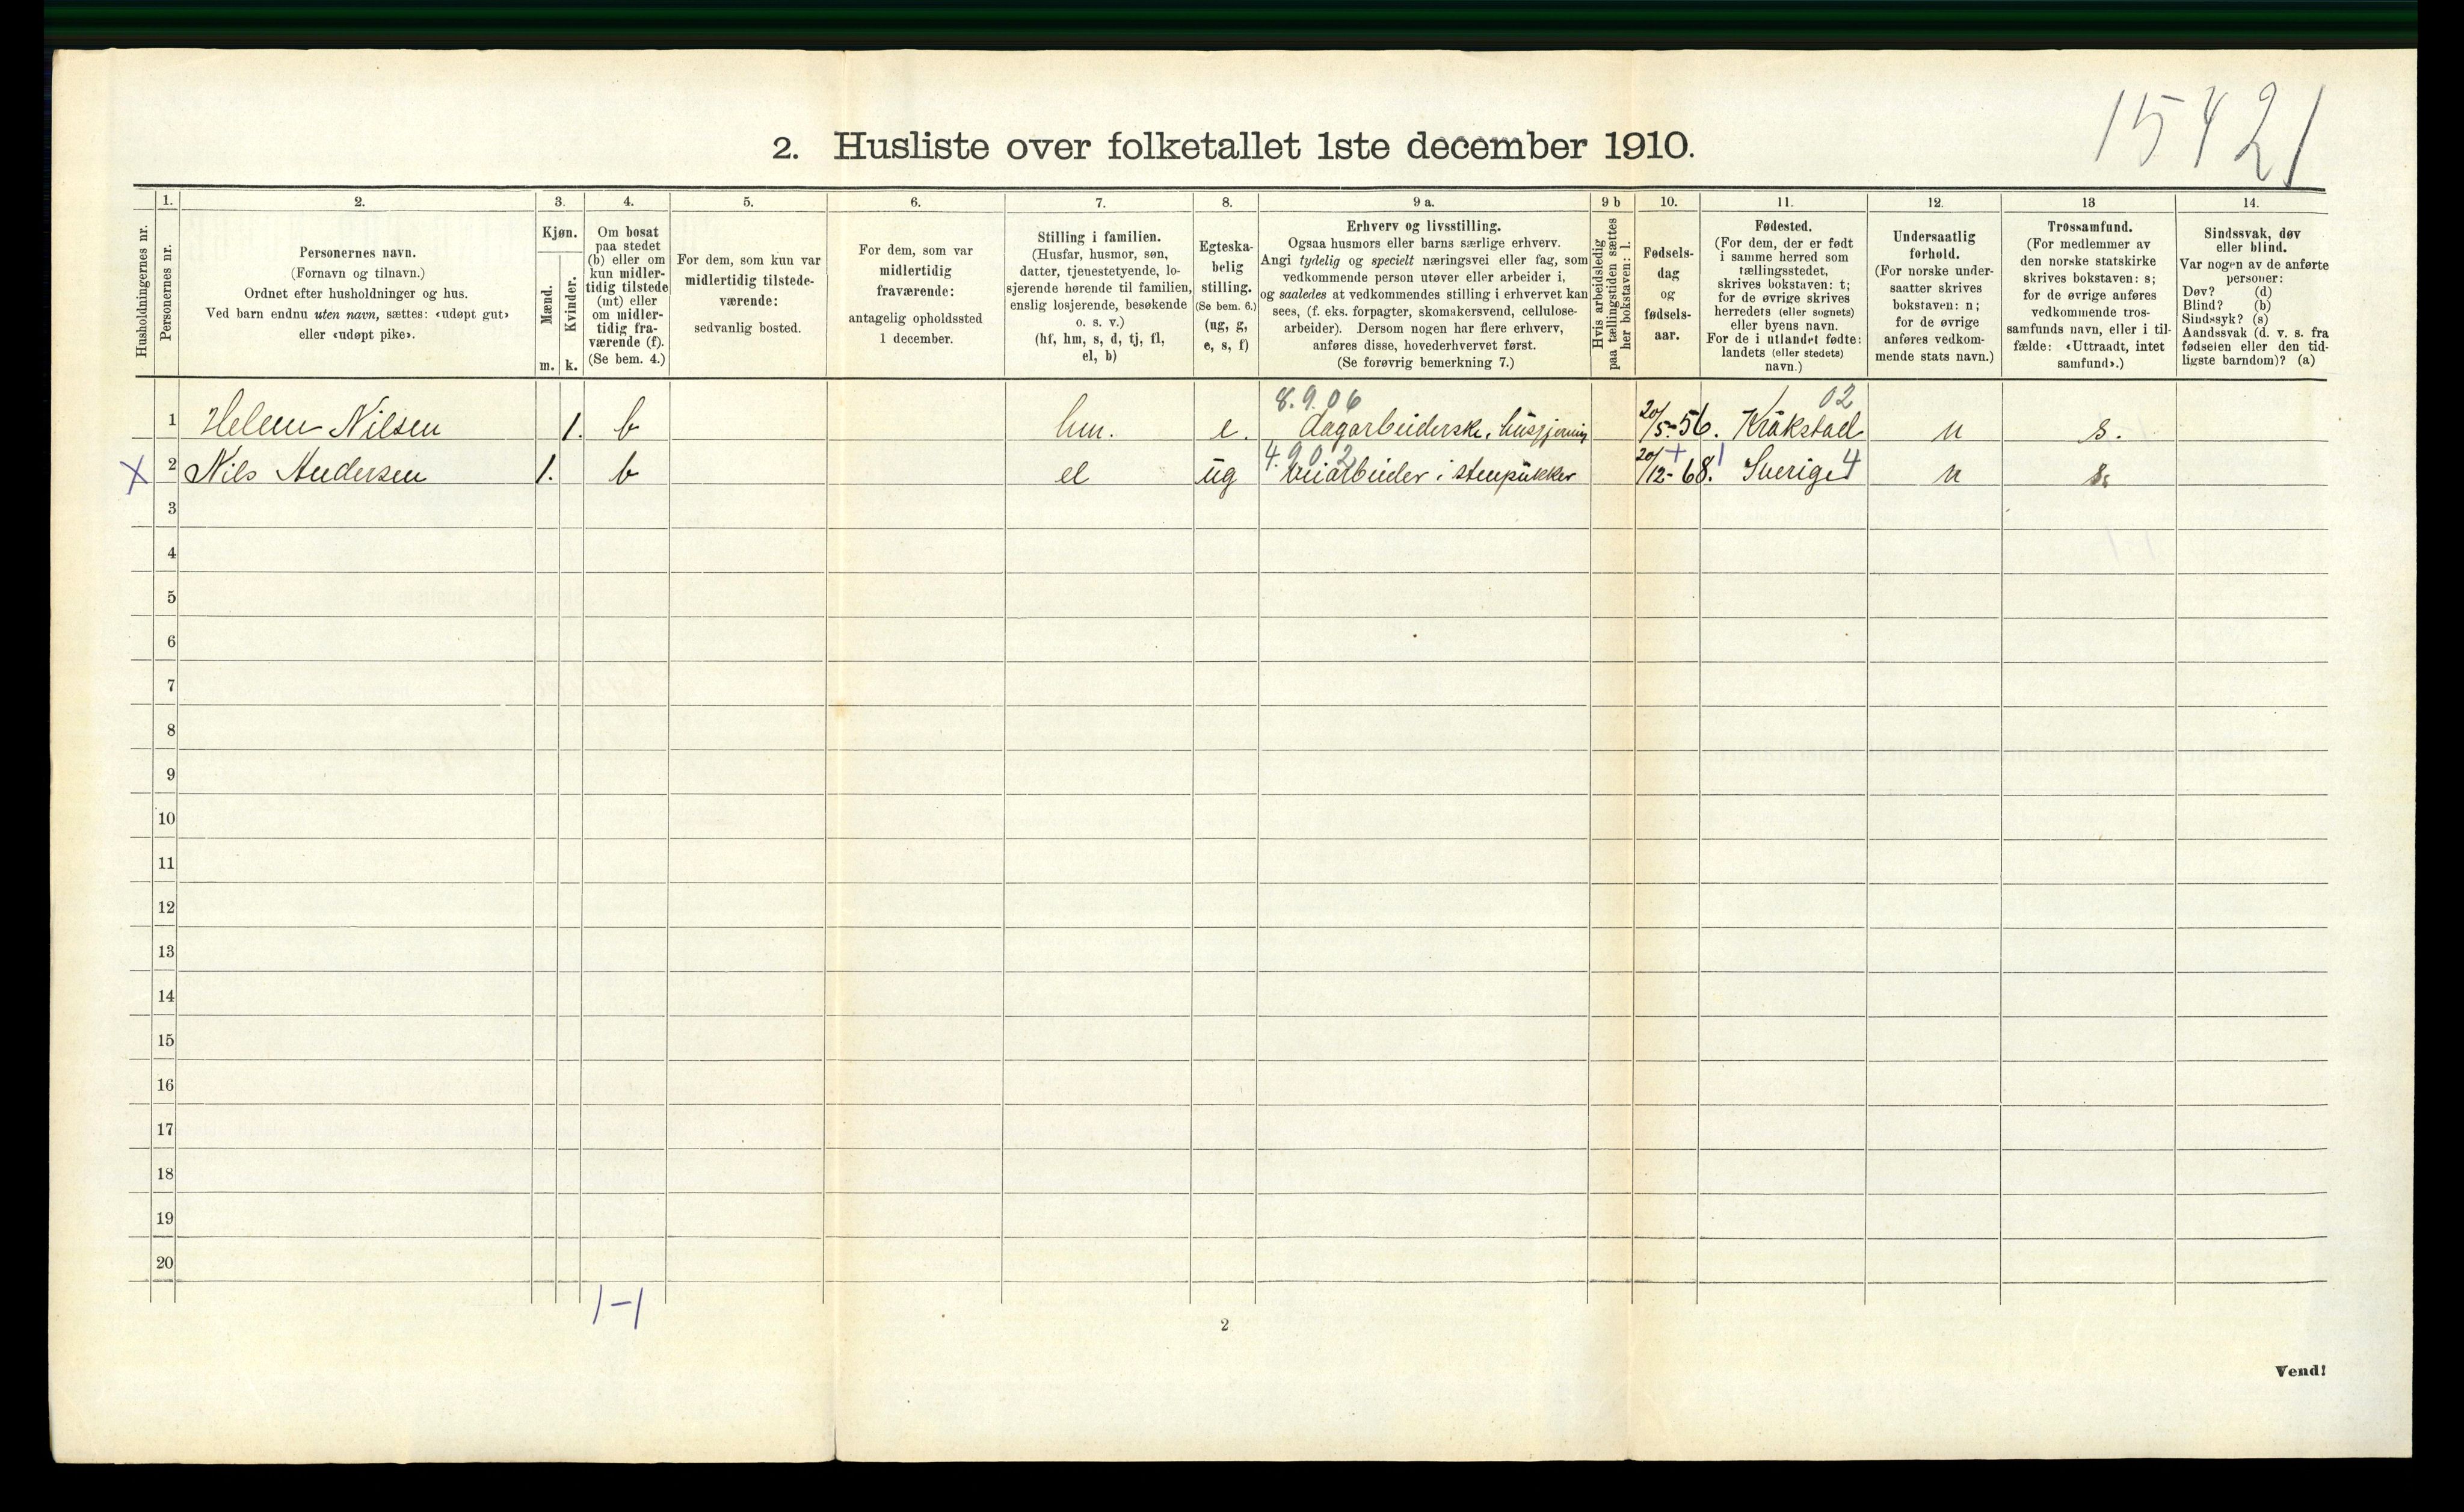 15421
2. Husliste over folketallet 1ste december 1910.
Husholdningernes nr.
1.
Personernes nr.
2.
Personernes navn.
(Fornavn og tilnavn.)
Ordnet efter husholdninger og hus.
Ved barn endnu uten navn, sættes: «udøpt gut»
eller «udøpt pike».
3.
Kjøn.
Mænd.
Kvinder.
m. k.
4.
Om bosat
paa stedet
(b) eller om
kun midler-
tidig tilstede
(mt) eller
om midler-
tidig fra-
værende (f).
(Se bem. 4.)
5.
For dem, som kun var
midlertidig tilstede-
værende:
sedvanlig bosted.
6.
For dem, som var
midlertidig
fraværende:
antagelig opholdssted
1 december.
7.
Stilling i familien.
(Husfar, husmor, søn,
datter, tjenestetyende, lo-
sjerende hørende til familien,
enslig losjerende, besøkende
o. s. v.)
(hf, hm, s, d, tj, fl,
el, b)
8.
Egteska-
belig
stilling.
(Se bem. 6.)
(ug, g,
e, s, f)
9 a.
Erhverv og livsstilling.
Ogsaa husmors eller barns særlige erhverv.
Angi tydelig og specielt næringsvei eller fag, som
vedkommende person utøver eller arbeider i,
og saaledes at vedkommendes stilling i erhvervet kan
sees, (f. eks. forpagter, skomakersvend, cellulose-
arbeider). Dersom nogen har flere erhverv,
anføres disse, hovederhvervet først.
(Se forøvrig bemerkning 7.)
9 b
Hvis arbeidsledig
paa tællingstiden sættes
her bokstaven: l.
10.
Fødsels-
dag
og
fødsels-
aar.
11.
Fødested.
(For dem, der er født
i samme herred som
tællingsstedet,
skrives bokstaven: t;
for de øvrige skrives
herredets (eller sognets)
eller byens navn.
For de i utlandet fødte:
landets (eller stedets)
navn.)
12.
Undersaatlig
forhold.
(For norske under-
saatter skrives
bokstaven: n;
for de øvrige
anføres vedkom-
mende stats navn.)
13
Trossamfund.
(For medlemmer av
den norske statskirke
skrives bokstaven: s;
for de øvrige anføres
vedkommende tros-
samfunds navn, eller i til-
fælde: «Uttraadt, intet
samfund».)
14.
Sindssvak, døv
eller blind.
Var nogen av de anførte
personer:
Døv? (d)
Blind? (b)
Sindssyk? (s)
Aandssvak (d. v. s. fra
fødselen eller den tid-
ligste barndom)? (a)
8.9.06 02
1 Helene Nilsen 1. b hm. e. dagarbeiderske, husgjerning 20/5-56. Kråkstad n s.
4.902 + 1 4
X 2 Nils Andersen 1. b el ug Veiarbeider i stenpukker 20/12-68. Sverige n s.
3
4
5
6
7
8
9
10
11
12
13
14
15
16
17
18
19
20
1-1
2
Vend!